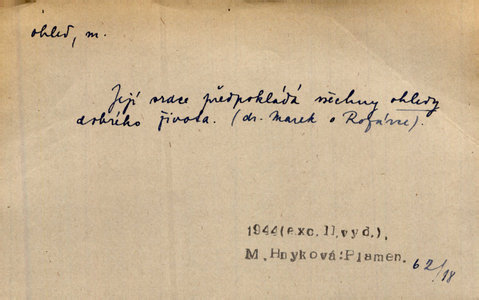 ohled, m.
Její srdce předpokládá všechny ohledy
dobrého života. (dr. Marek o
1944(exc.II.vyd.),
M.Hnyková:Plamen. 62/18